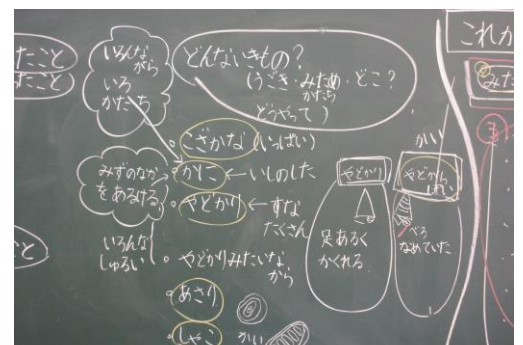 たこと
たこと
いろんな
がら
いろ
かたち
どんないきもの?
(うごき・みため・どこ?
かたち
どうやって)
こざかな(いっぱい)
みずのなか
をあるける
かに←いしのした
やどかり←すな
たくさん
いろんな
しゅるい
やどかりみたいな
から
あさり
しゃこ
かい
やどかり
足あるく
かくれる
かい
べろ
なめていた
これか
みた
こと